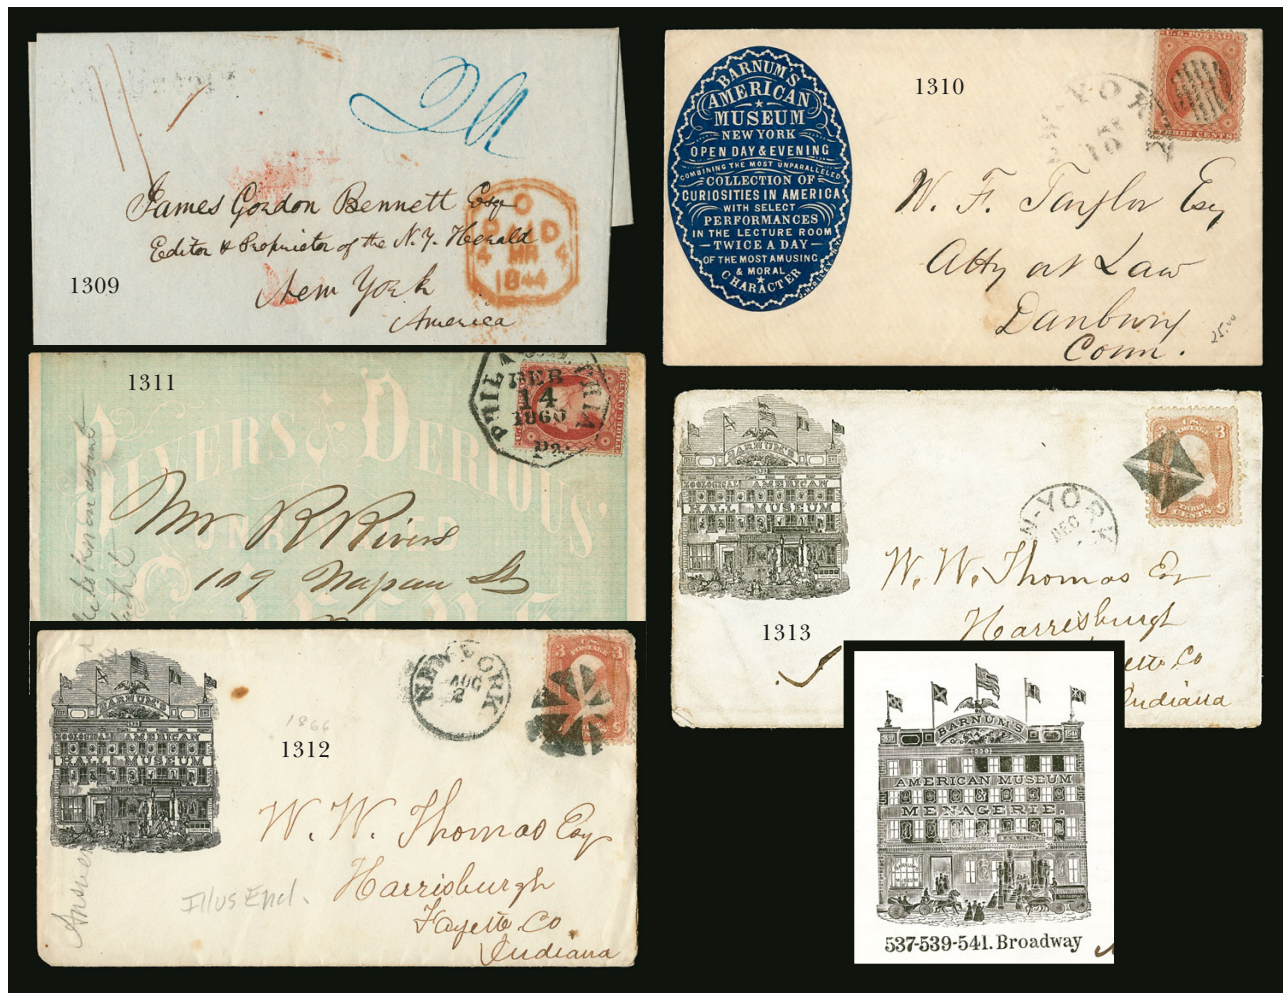 James Gordon Bennett Esq
Editor & Proprietor of the N.Y. Herald
New York
America
PAID
4 MR 4
1844
1309
BARNUM'S
AMERICAN
MUSEUM
NEW YORK
OPEN DAY & EVENING
COMBINING THE MOST UNPARALLELED
COLLECTION OF
CURIOSITIES IN AMERICA
WITH SELECT
PERFORMANCES
IN THE LECTURE ROOM
TWICE A DAY
OF THE MOST AMUSING
& MORAL
CHARACTER
1310
U.S. POSTAGE
THREE CENTS
W. F. Taylor Esq
Atty at Law
Danbury
Conn.
25.00
1311
RIVERS & DERIOUS'
PHILADELPHIA
FEB
14
1860
Pa.
THREE CENTS
Mr R Rivers
109 Nassau St
BARNUM'S
ZOOLOGICAL AMERICAN
HALL MUSEUM
N-YORK
DEC
3
CENTS
W. W. Thomas Esq
Harrisburgh
Fayette Co
Indiana
1313
BARNUM'S
ZOOLOGICAL AMERICAN
HALL MUSEUM
NEW YORK
AUG
2
3
POSTAGE
1866
1312
W. W. Thomas Esq
Harrisburgh
Fayette Co.
Indiana
Illus Encl.
BARNUM'S
AMERICAN MUSEUM
MENAGERIE.
537-539-541. Broadway